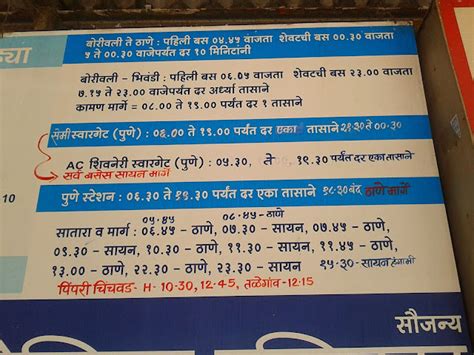 ड्या
बोरीवली ते ठाणे : पहिली बस ०४.४५ वाजता शेवटची बस ००.३० वाजता
५ ते ००.३० वाजेपर्यंत दर १० मिनिटांनी
बोरीवली - भिवंडी : पहिली बस ०६.०५ वाजता शेवटची बस २३.०० वाजता
७.१५ ते २३.०० वाजेपर्यंत दर अर्ध्या तासाने
कामण मार्गे = ०८.०० ते १९.०० पर्यंत दर १ तासाने
सेमी स्वारगेट (पुणे) : ०६.०० ते १९.०० पर्यंत दर एका तासाने २१-३० ते ००-३०
AC शिवनेरी स्वारगेट (पुणे) : ०५.३०, ते १९.३० पर्यंत दर एका तासाने
सर्व बसेस सायन मार्ग
पुणे स्टेशन : ०६.३० ते १९.३० पर्यंत दर एका तासाने १८-३० बंद ठाणे मार्गे
10
०५-४५ ०८-४५-ठाणे
सातारा व मार्ग : ०६.४५ - ठाणे, ०७.३० - सायन, ०७.४५ - ठाणे,
०९.३० - सायन, १०.३० - ठाणे, ११.३० - सायन, ११.४५ - ठाणे,
१३.०० - ठाणे, २२.३० - ठाणे, २३.३० - सायन १५-३०-सायन हंगामी
पिंपरी चिंचवड- H- 10-30, 12-45, तळेगांव-12-15
सौजन्य